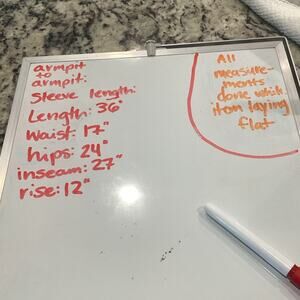 armpit
to
armpit:
Sleeve length:
Length: 36"
Waist: 17"
hips: 24"
inseam: 27"
rise: 12"
All
measure-
ments
done while
item laying
flat